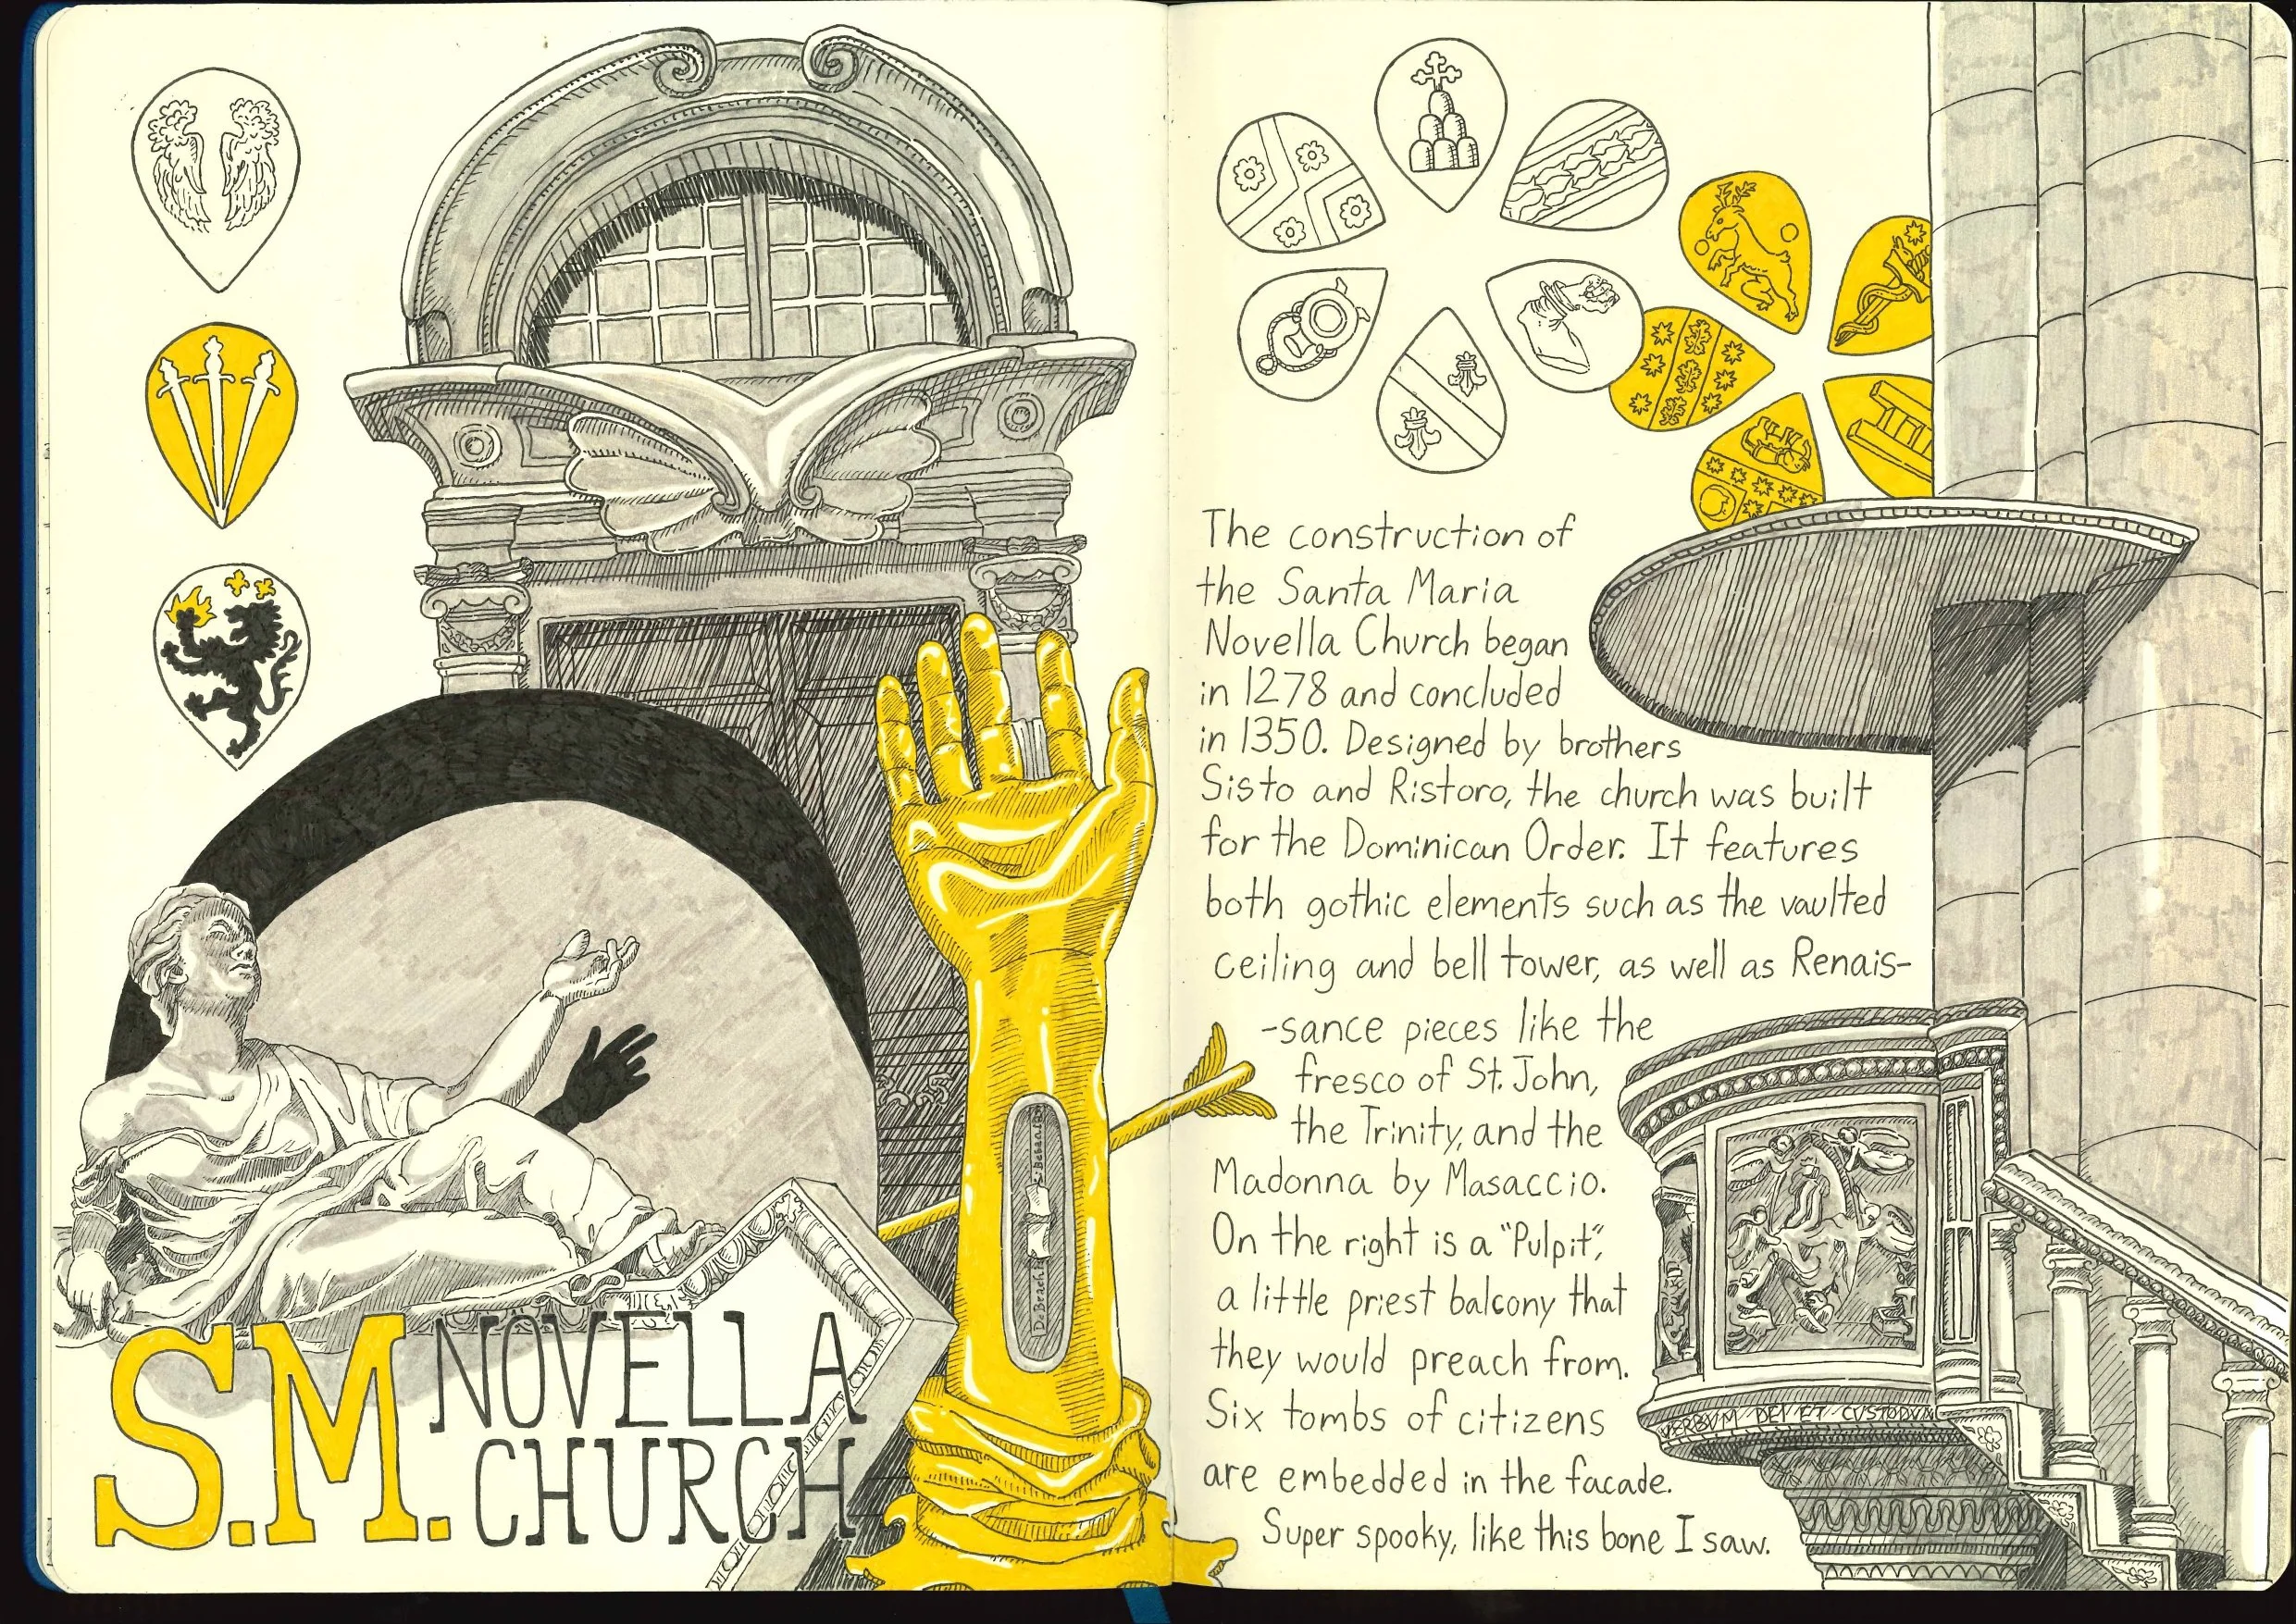 S.M. NOVELLA
CHURCH
The construction of
the Santa Maria
Novella Church began
in 1278 and concluded
in 1350. Designed by brothers
Sisto and Ristoro, the church was built
for the Dominican Order. It features
both gothic elements such as the vaulted
ceiling and bell tower, as well as Renais-
-sance pieces like the
fresco of St. John,
the Trinity, and the
Madonna by Masaccio.
On the right is a "Pulpit",
a little priest balcony that
they would preach from.
Six tombs of citizens
are embedded in the facade.
Super spooky, like this bone I saw.
VERBVM DEI ET CVSTODVN